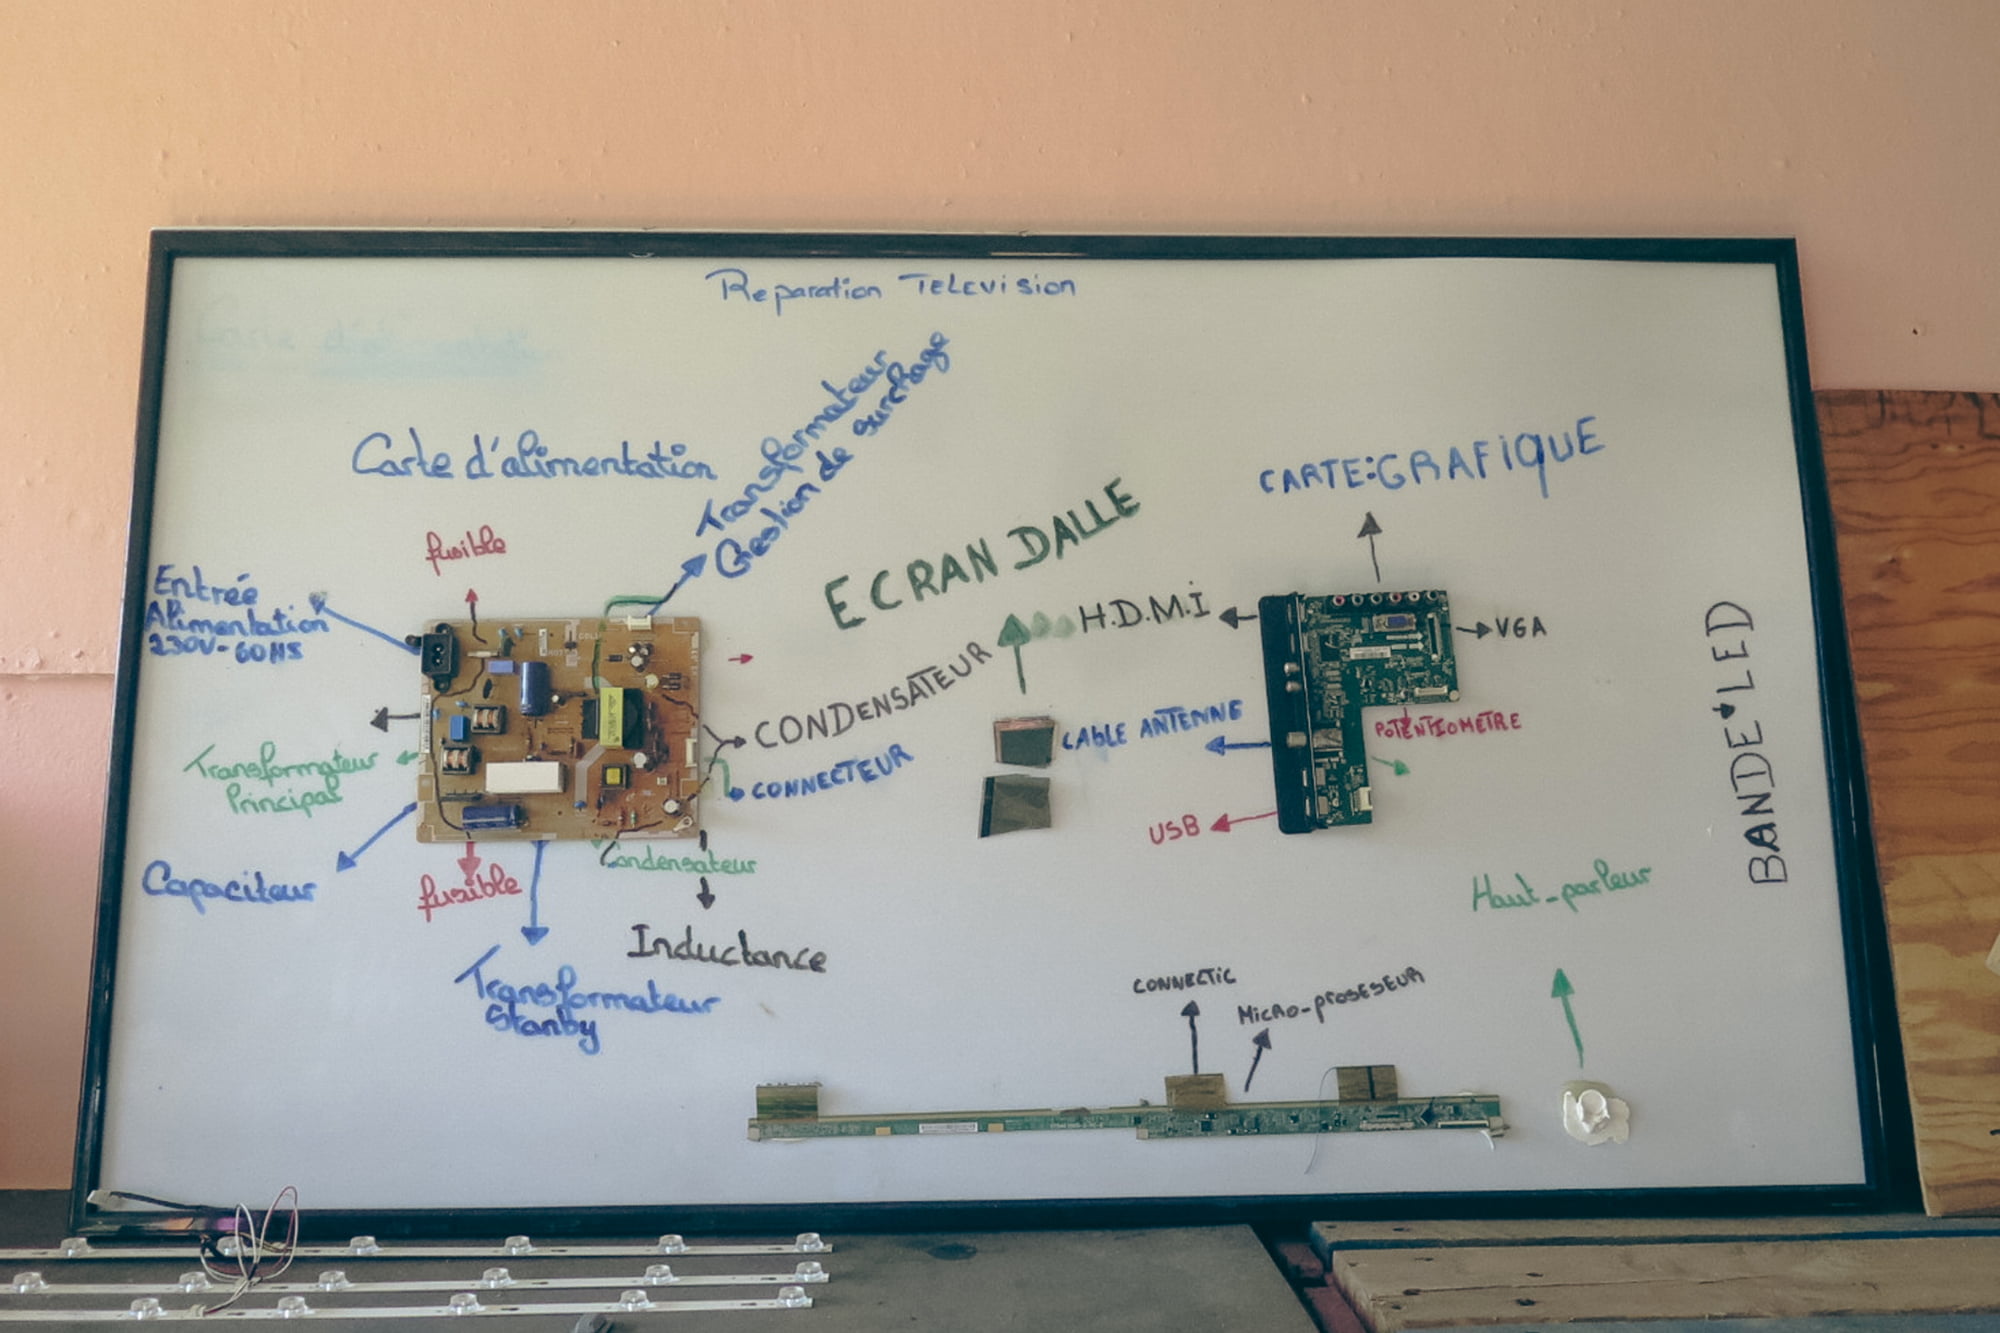 Reparation TELEVision
Carte d'alimentation
Transformateur
Gestion de surchage
fusible
Entrée
Alimentation
230V-60HS
Transformateur
Principal
Capaciteur
fusible
Transformateur
Stanby
Condensateur
Inductance
CONDENSATEUR
CONNECTEUR
ECRAN DALLE
CARTE:GRAFiQUE
H.D.M.I
VGA
CABLE ANTENNE
POTENTIOMETRE
USB
BANDE LED
Haut-parleur
CONNECTIC
MICRO-PROSESEUR